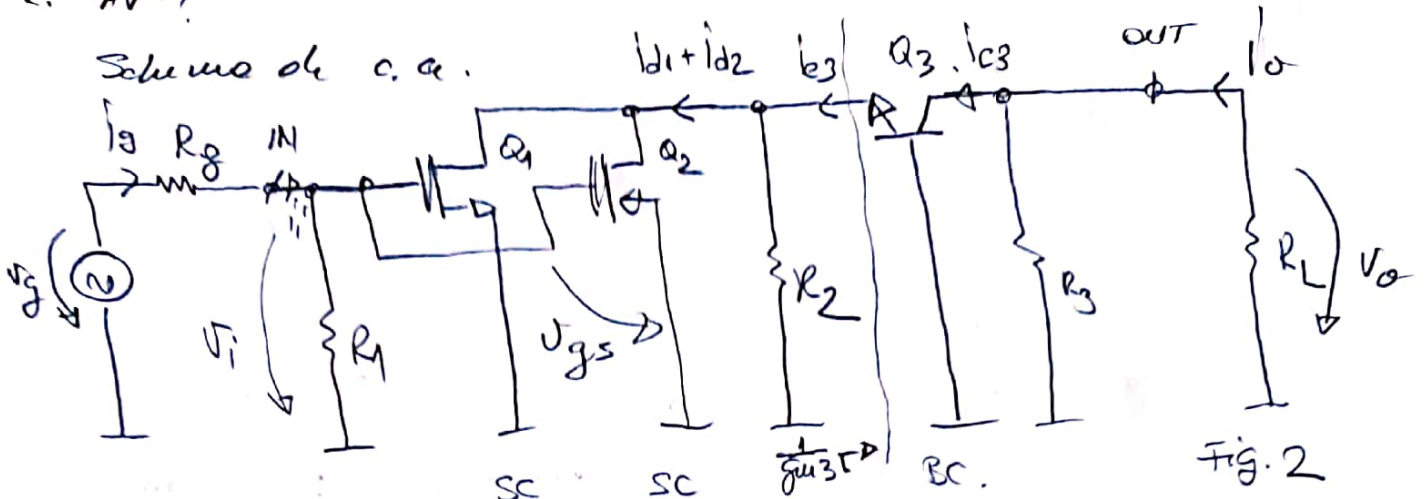 Schema de c.a.
id1+id2
ie3
Q3
ic3
OUT
Io
ig
Rg
IN
Q1
Q2
vg
vi
R1
vgs
R2
R3
RL
vo
1/gm3
SC
SC
BC.
Fig. 2